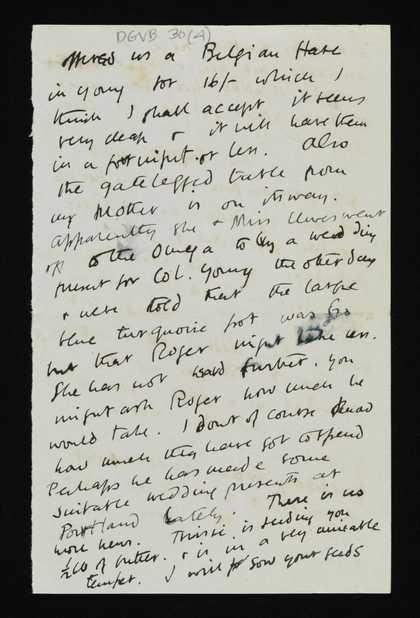 DGVB 30(4)
offered us a Belgian Hare
in young for 16/- which I
think I shall accept it seems
very cheap & it will have them
in a fortnight or less. Also
the gatelegged table from
my Mother is on its way.
Apparently she & Miss went
to the Omega to buy a wedding
present for Col. Young the other day
& were told that the large
blue turquoise pot was
but that Roger might take less.
She has not said further. You
might ask Roger how much he
would take. I dont of course know
how much they have got to spend
Perhaps he has made some
suitable wedding presents at
Portland lately. There is no
more news. is sending you
½ lb of butter. & is in a very amiable
temper. I will sow your seeds